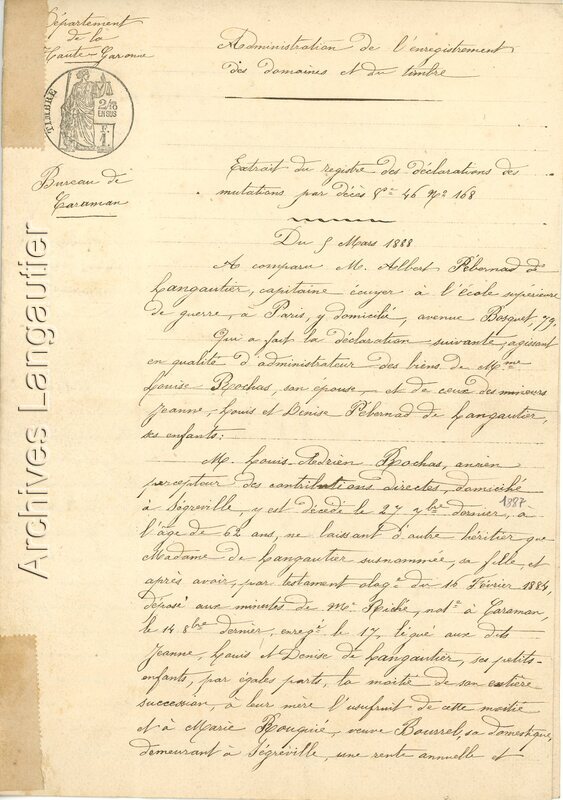 Département
de la
Haute-Garonne
TIMBRE
2/10
EN SUS
Bureau de
Caraman
Administration de l'enregistrement
des domaines et du timbre
Extrait du registre des déclarations des
mutations par décès Vol. 46 No 168
Du 5 Mars 1888
A comparu M. Albert Pébernad de
Langautier, capitaine écuyer à l'école supérieure
de guerre, à Paris, y domicilié, avenue Bosquet, 79.
Qui a fait la déclaration suivante, agissant
en qualité d'administrateur des biens de Mme
Louise Rochas, son épouse, et de ceux des mineurs
Jeanne, Louis et Denise Pébernad de Langautier,
ses enfants:
M. Louis-Adrien Rochas, ancien
percepteur des contributions directes, domicilié
à Ségreville, y est décédé le 27 7bre dernier, à
1887
l'âge de 62 ans, ne laissant d'autre héritier que
Madame de Langautier susnommée, sa fille, et
après avoir, par testament olog.e du 16 Février 1884,
déposé aux minutes de Me Riché, note à Caraman,
le 14 8bre dernier, enregé le 17, légué aux dits
Jeanne, Louis et Denise de Langautier, ses petits-
enfants, par égales parts, la moitié de son entière
succession, à leur mère l'usufruit de cette moitié
et à Marie Rouquié, veuve Bourrel, sa domestique,
demeurant à Ségreville, une rente annuelle et
Archives Langautier